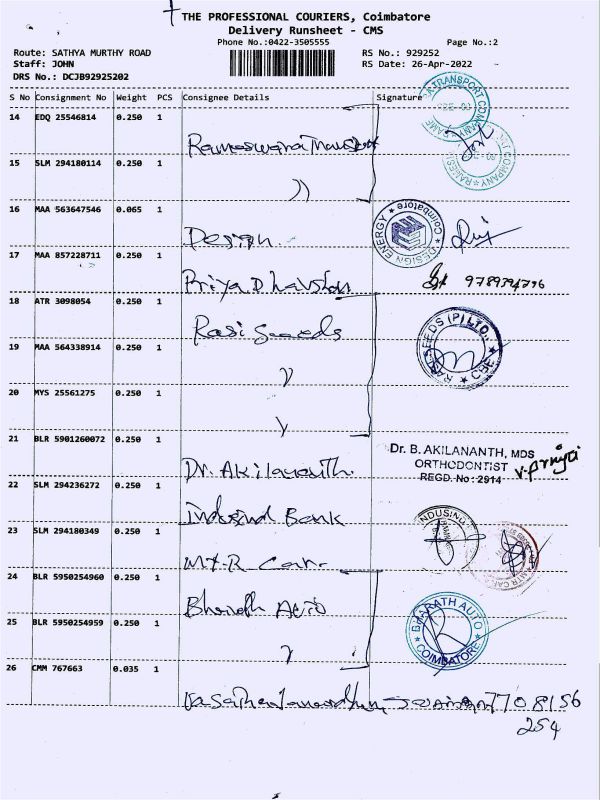 THE PROFESSIONAL COURIERS, Coimbatore
Delivery Runsheet - CMS
Phone No.:0422-3505555
Page No.:2
Route: SATHYA MURTHY ROAD
RS No.: 929252
Staff: JOHN
RS Date: 26-Apr-2022
DRS No.: DCJB92925202
S No Consignment No Weight PCS Consignee Details Signature
14 EDQ 25546814 0.250 1
Rameswara Transport
15 SLM 294180114 0.250 1
))
16 MAA 563647546 0.065 1
Design
DESIGN ENERGY * Coimbatore *
17 MAA 857228711 0.250 1
Priya Dharshan
18 ATR 3098054 0.250 1
Rasi Seeds
RASI SEEDS (P) LTD., * CBE *
19 MAA 564338914 0.250 1
20 MYS 25561275 0.250 1
21 BLR 5901260072 0.250 1
Dr. Akilananth.
Dr. B. AKILANANTH, MDS
ORTHODONTIST
REGD. No: 2914
22 SLM 294236272 0.250 1
Indusind Bank
23 SLM 294180349 0.250 1
M.T.R Car.
24 BLR 5950254960 0.250 1
Bharath Auto
BHARATH AUTO * COIMBATORE *
25 BLR 5950254959 0.250 1
26 CMM 767663 0.035 1
7708156
254